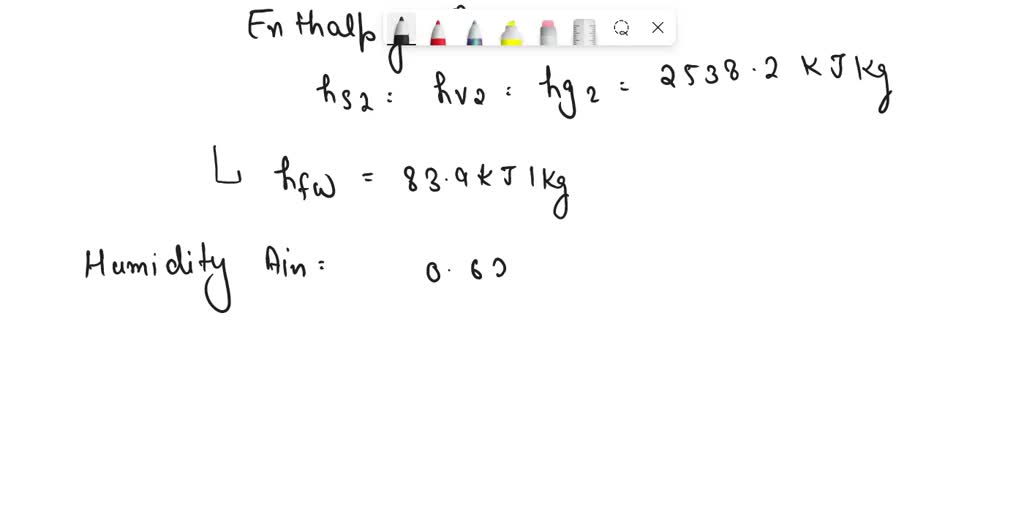 Enthalpy
hs2 = hv2 = hg2 = 2538.2 KJKg
hfw = 83.9 kJ/Kg
Humidity Air = 0.62